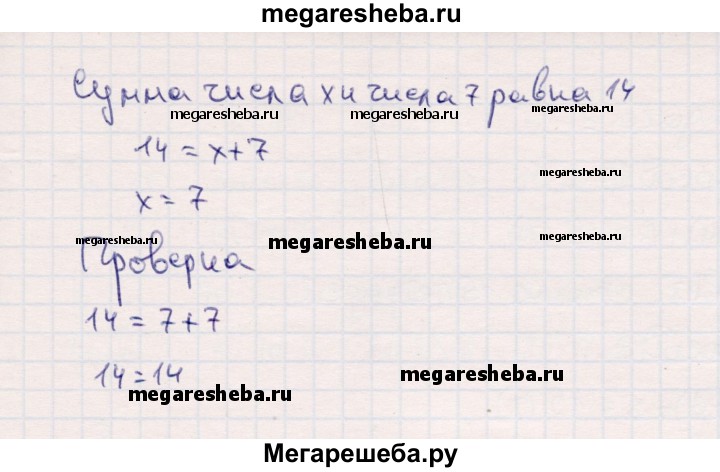 megaresheba.ru
Сумма числа х и числа 7 равна 14
megaresheba.ru megaresheba.ru megaresheba.ru
14 = х + 7
megaresheba.ru
х = 7
megaresheba.ru megaresheba.ru megaresheba.ru
Проверка
14 = 7 + 7
14 = 14
megaresheba.ru
megaresheba.ru megaresheba.ru
Мегарешеба.ру